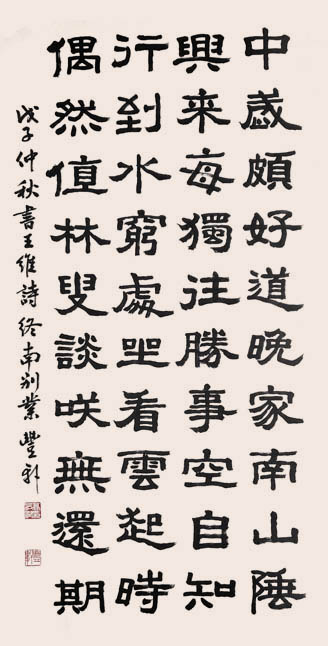 中歲頗好道晚家南山陲
興来每獨往勝事空自知
行到水窮處坐看雲起時
偶然值林叟談咲無還期
戊子仲秋書王維詩终南别業豐彩